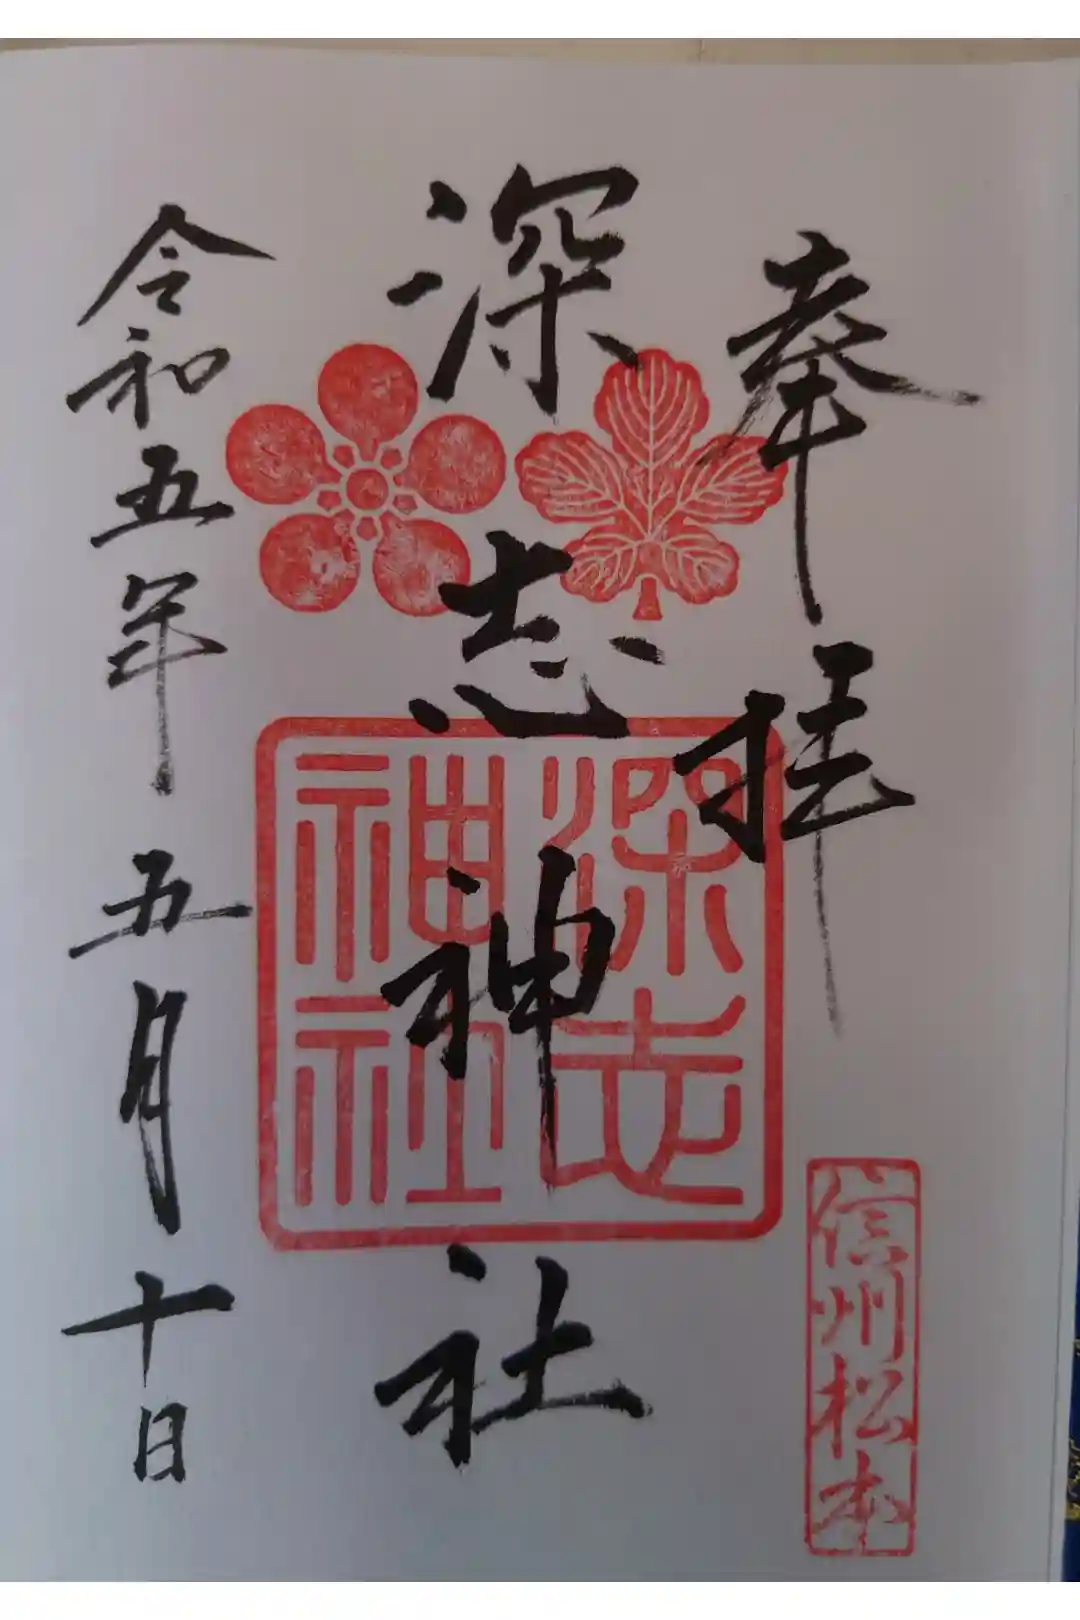 奉拝
信州松本
深志神社
深志
神社
令和五年五月十日